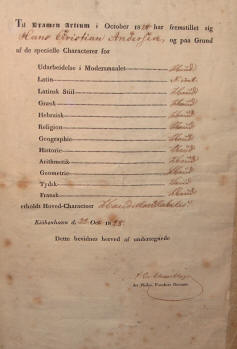 Til Examen Artium i October 1828 har fremstillet sig
Hans Christian Andersen, og paa Grund
af de specielle Characterer for
Udarbeidelse i Modersmaalet Haud
Latin N. cont.
Latinsk Stiil Haud
Græsk Haud
Hebraisk Haud
Religion Haud
Geographie Haud
Historie Haud
Arithmetik Haud
Geometrie Haud
Tydsk Laud
Fransk Haud
erholdt Hoved-Character Haud illaudabilis
Kiöbenhavn d. 22 Octr 1828.
Dette bevidnes herved af undertegnede
det Philos. Facultets Decanus.